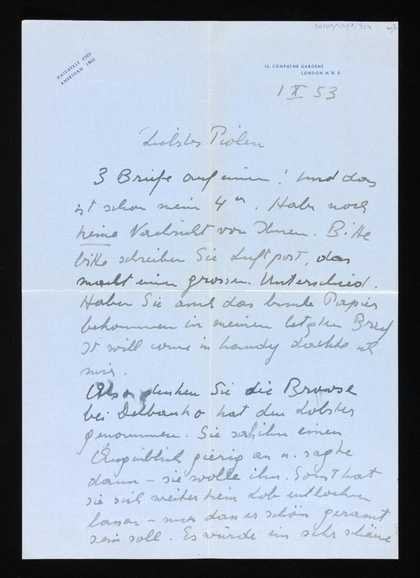 MAIDA VALE 7165
12, COMPAYNE GARDENS
LONDON N.W.6
1 X 53
Liebstes
3 Briefe auf einen! Und das
ist schon mein 4er. Habe noch
keine Nachricht von Ihnen. Bitte
bitte schreiben Sie Luftpost, das
macht einen grossen Unterschied.
Haben Sie auch das bunte Papier
bekommen in meinem letzten Brief
It will come in handy dachte ich
mir.
Also denken Sie die Browse
bei Delbanko hat den Lobster
genommen. Sie sah ihn einen
Augenblick gierig an u. sagte
dann – sie wolle ihn. Sonst hat
sie sich weiter kein Lob entlocken
lassen – nur dass er schön geramt
sein soll. Es würde ein sehr